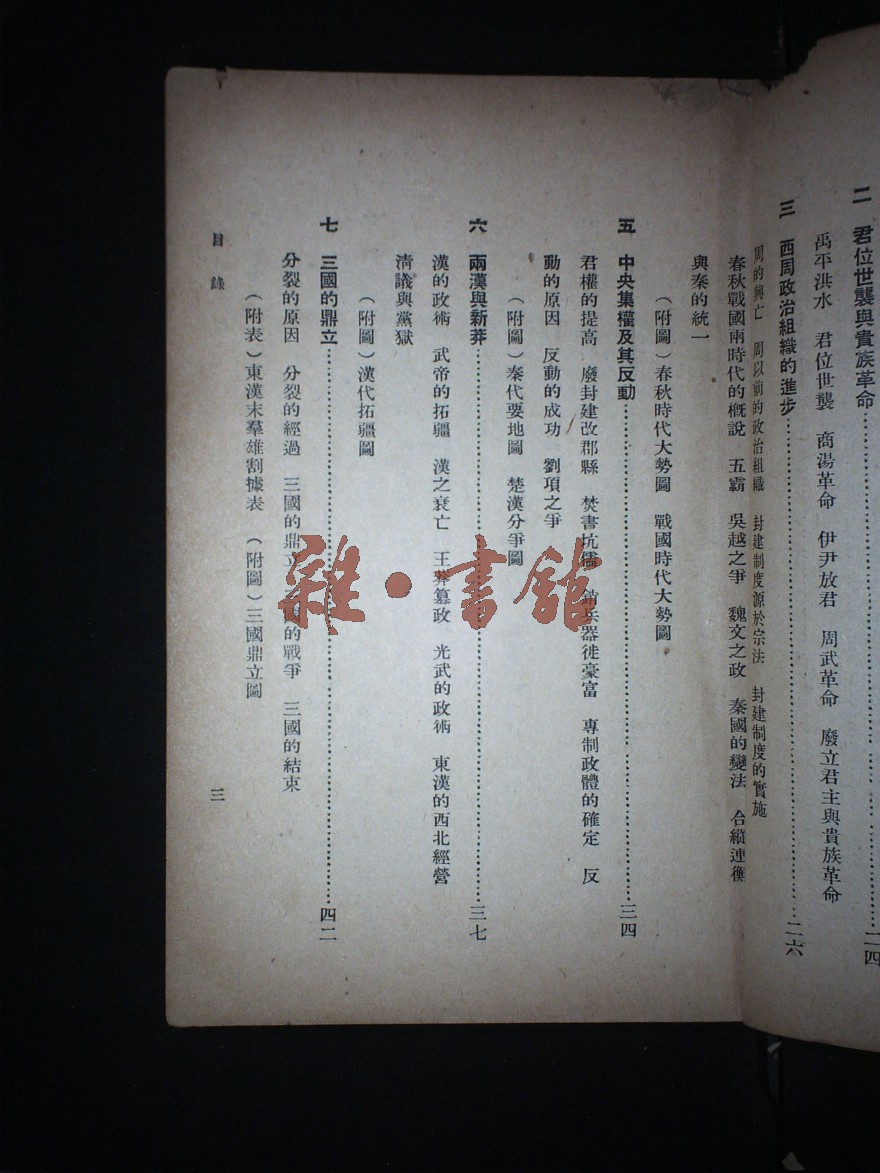 二 君位世襲與貴族革命……二四
禹平洪水 君位世襲 商湯革命 伊尹放君 周武革命 廢立君主與貴族革命
三 西周政治組織的進步……二六
周的興亡 周以前的政治組織 封建制度源於宗法 封建制度的實施
春秋戰國兩時代的概說 五霸 吳越之爭 魏文之政 秦國的變法 合縱連衡
與秦的統一
(附圖)春秋時代大勢圖 戰國時代大勢圖
五 中央集權及其反動……三四
君權的提高 廢封建改郡縣 焚書坑儒 銷兵器徙豪富 專制政體的確定 反
動的原因 反動的成功 劉項之爭
(附圖)秦代要地圖 楚漢分爭圖
六 兩漢與新莽……三七
漢的政術 武帝的拓疆 漢之衰亡 王莽篡政 光武的政術 東漢的西北經營
清議與黨獄
(附圖)漢代拓疆圖
七 三國的鼎立……四二
分裂的原因 分裂的經過 三國的鼎立 三國的戰爭 三國的結束
(附表)東漢末羣雄割據表 (附圖)三國鼎立圖
目錄 三
雜·書館